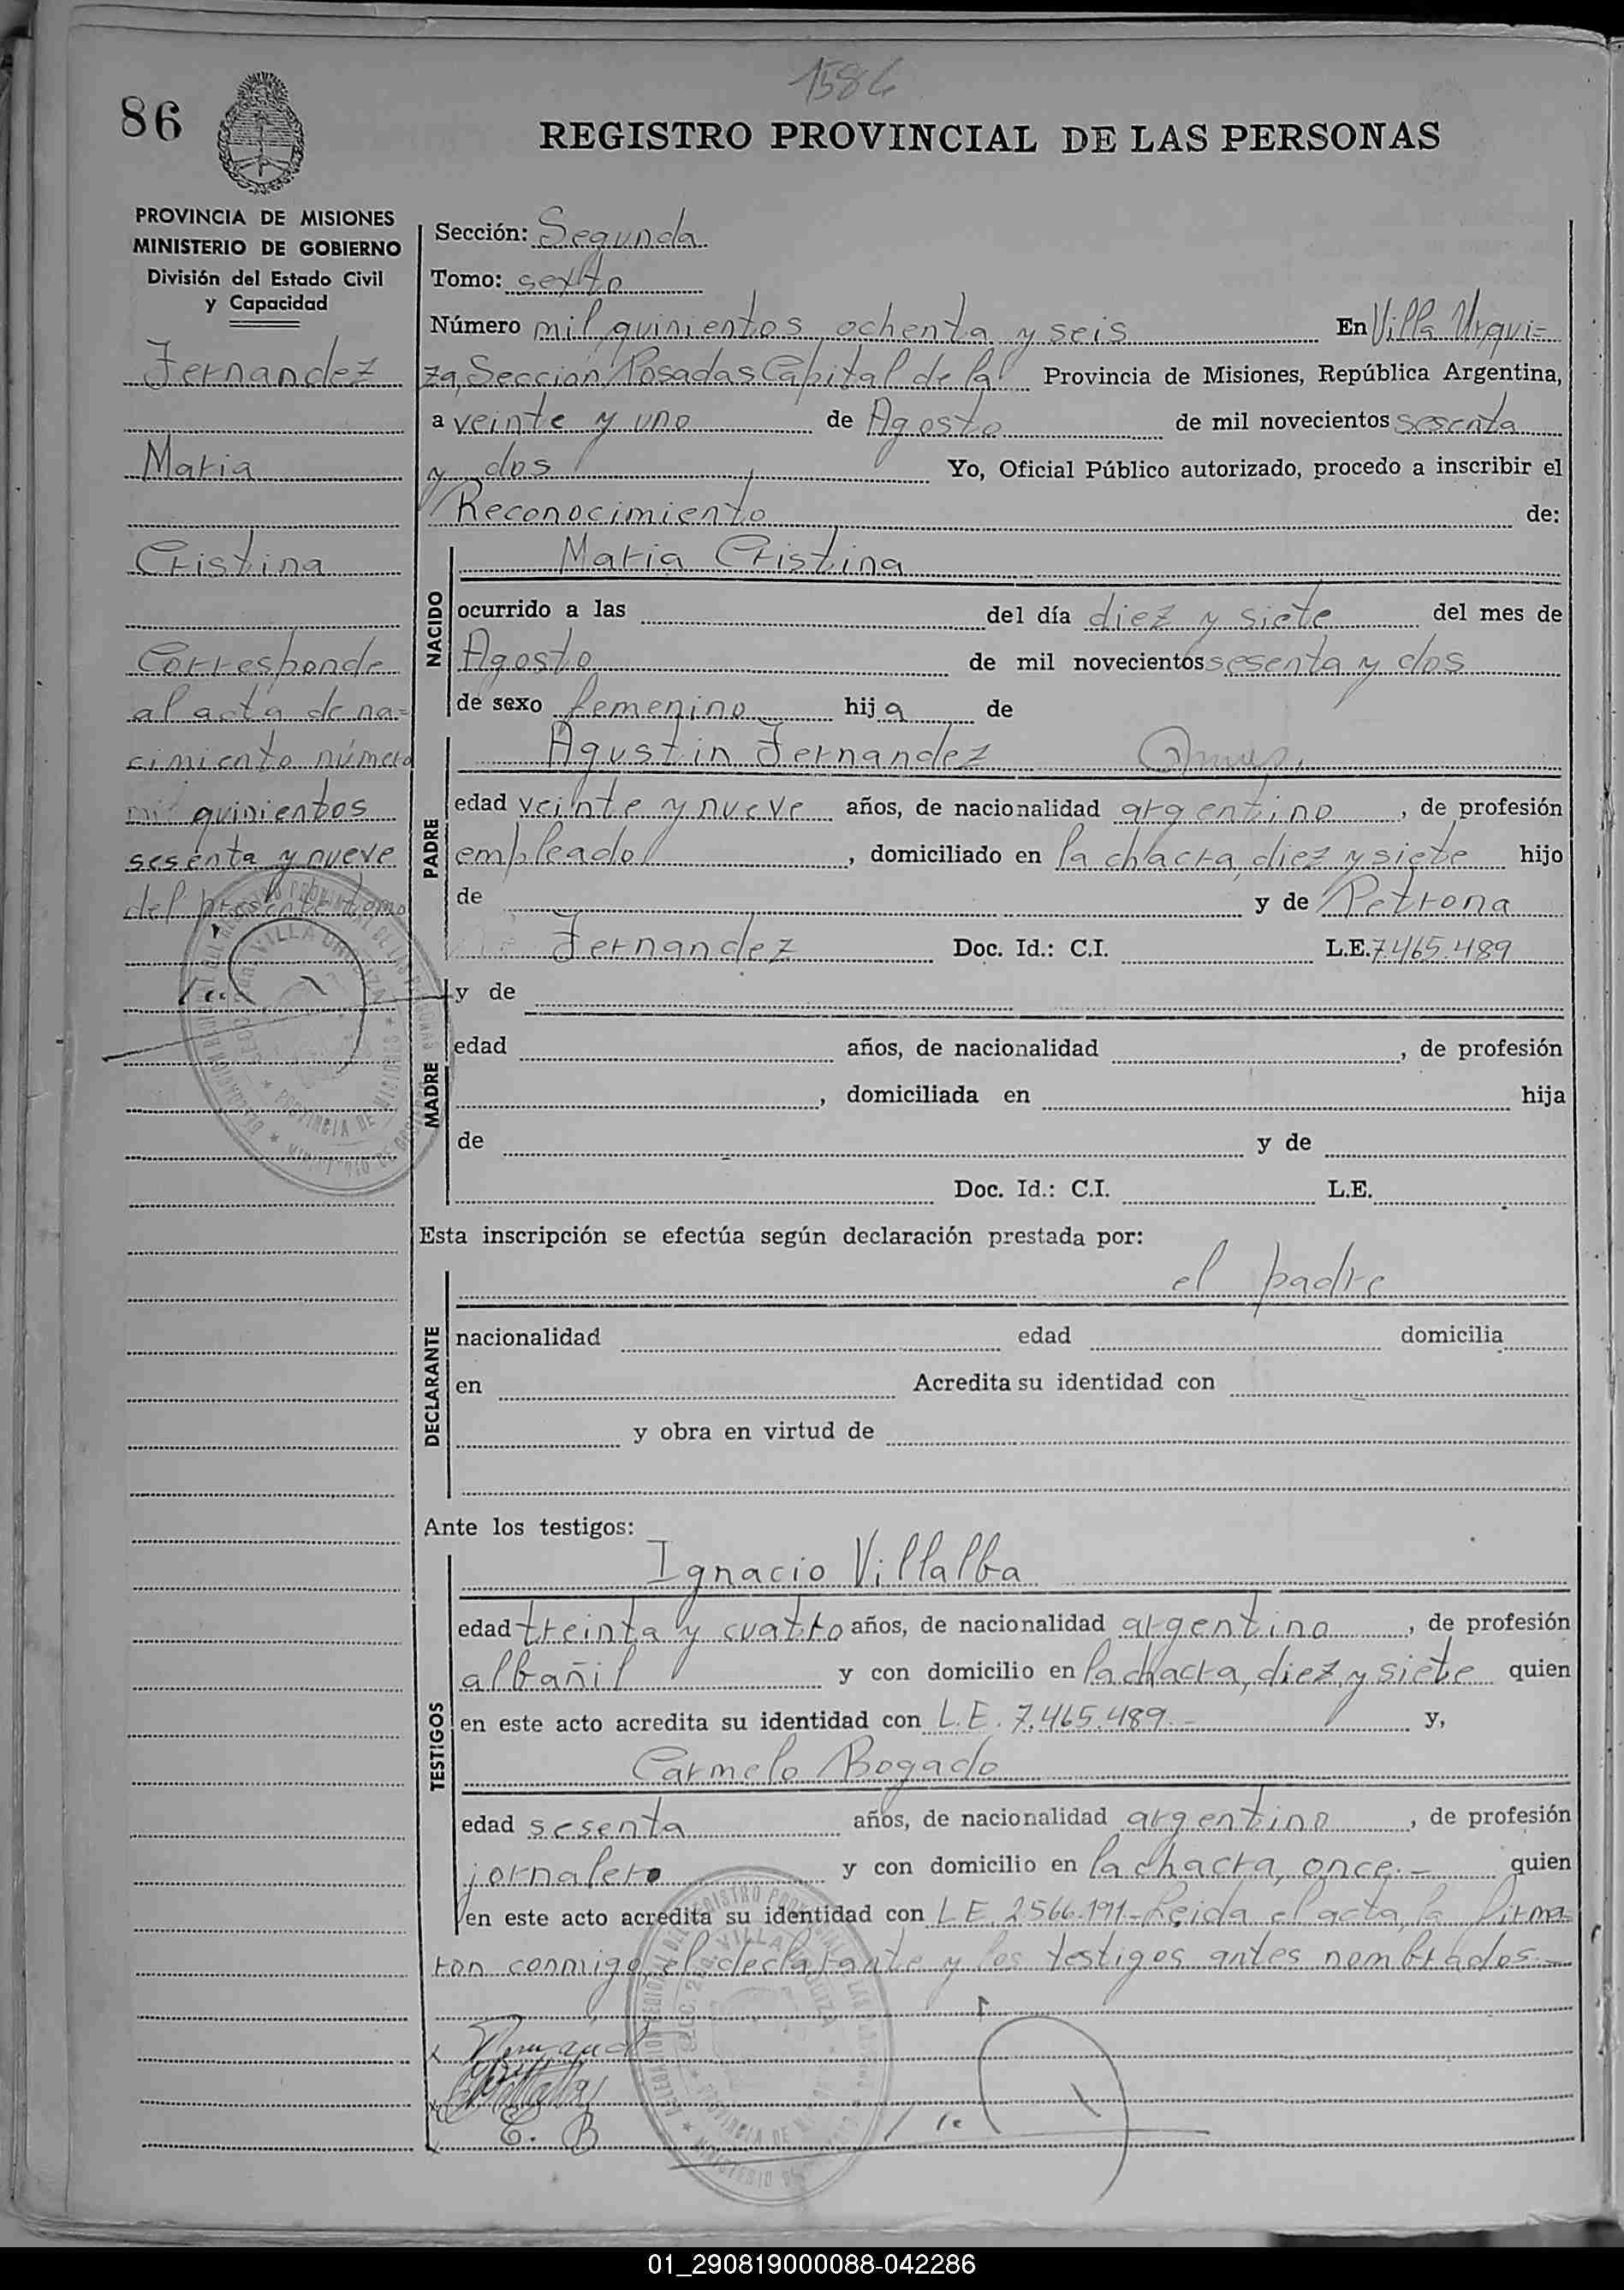 1586
86
REGISTRO PROVINCIAL DE LAS PERSONAS
PROVINCIA DE MISIONES
MINISTERIO DE GOBIERNO
División del Estado Civil
y Capacidad
Fernandez
Maria
Cristina
Corresponde
al acta de na=
cimiento número
mil quinientos
sesenta y nueve
del presente tomo
Sección: Segunda
Tomo: sexto
Número mil quinientos ochenta y seis En Villa Urqui=
za, Sección Posadas Capital de la Provincia de Misiones, República Argentina,
a veinte y uno de Agosto de mil novecientos sesenta
y dos Yo, Oficial Público autorizado, procedo a inscribir el
Reconocimiento de:
NACIDO
Maria Cristina
ocurrido a las del día diez y siete del mes de
Agosto de mil novecientos sesenta y dos
de sexo femenino hija de
PADRE
Agustin Fernandez
edad veinte y nueve años, de nacionalidad argentino, de profesión
empleado, domiciliado en la chacra diez y siete hijo
de y de Petrona
Fernandez Doc. Id.: C.I. L.E. 7.465.489
MADRE
y de
edad años, de nacionalidad , de profesión
, domiciliada en hija
de y de
Doc. Id.: C.I. L.E.
Esta inscripción se efectúa según declaración prestada por:
DECLARANTE
el padre
nacionalidad edad domicilia
en Acredita su identidad con
y obra en virtud de
Ante los testigos:
TESTIGOS
Ignacio Villalba
edad treinta y cuatro años, de nacionalidad argentino, de profesión
albañil y con domicilio en la chacra, diez y siete quien
en este acto acredita su identidad con L.E. 7.465.489.- y,
Carmelo Bogado
edad sesenta años, de nacionalidad argentino, de profesión
jornalero y con domicilio en la chacra, once.- quien
en este acto acredita su identidad con L.E. 2566.191-Leida el acta, la firma=
ron conmigo, el declarante y los testigos antes nombrados.-
C. B
01_290819000088-042286